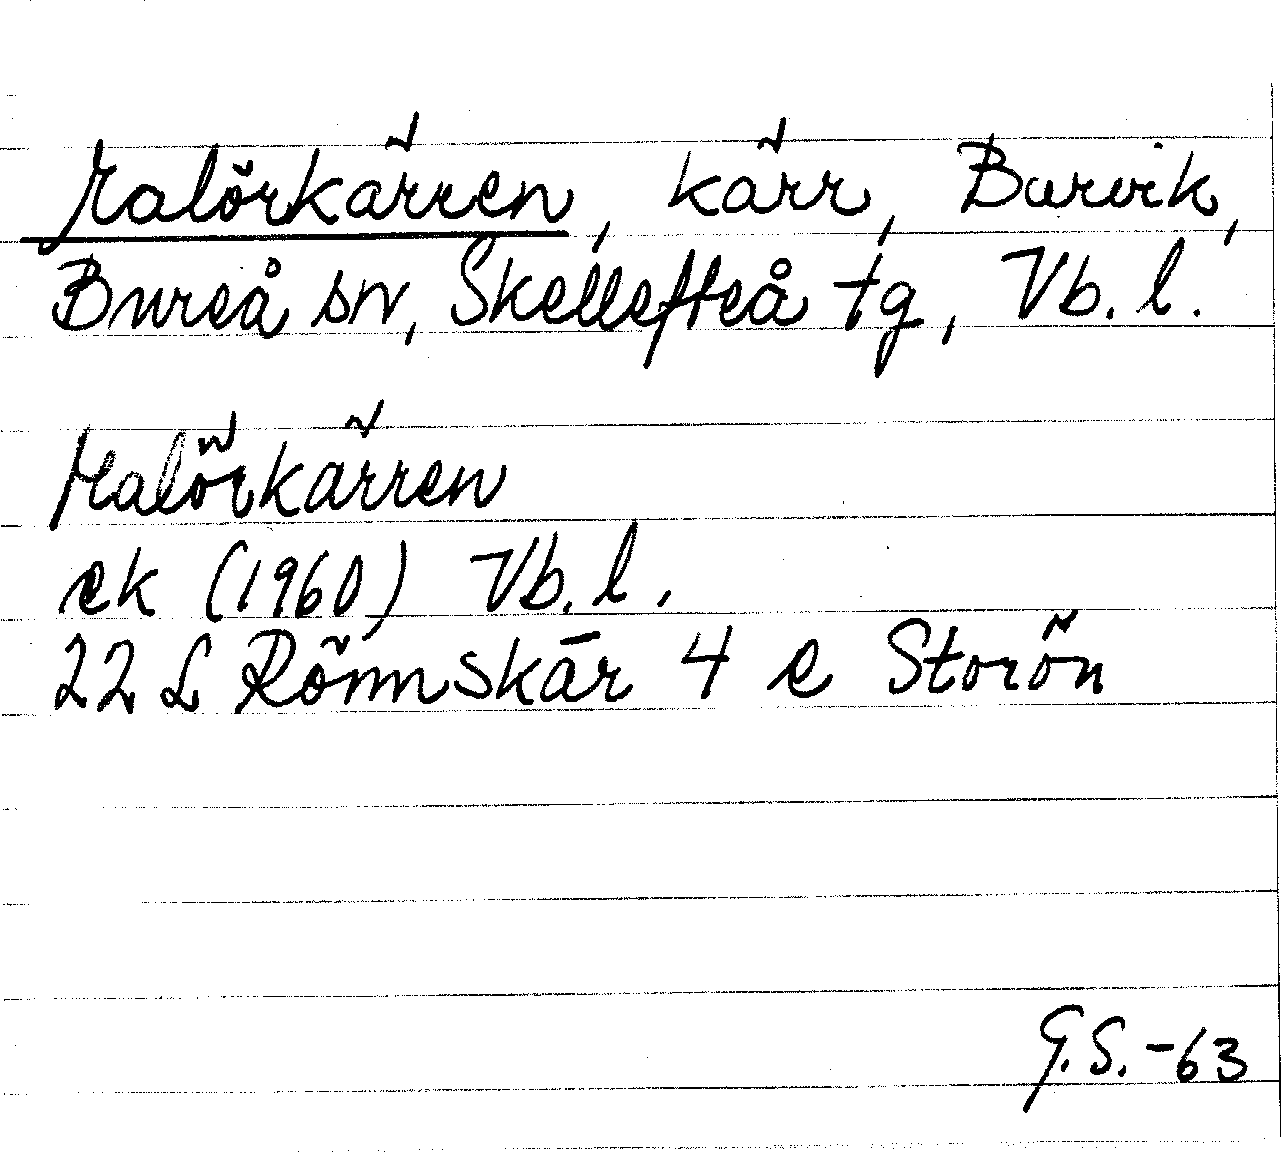 Halörkärren, kärr, Burvik,
Bureå sn, Skellefteå tg, Vb. l.
Halörkärren
ek (1960) Vb. l.
22 L Rönnskär 4 e Storön
G.S. -63